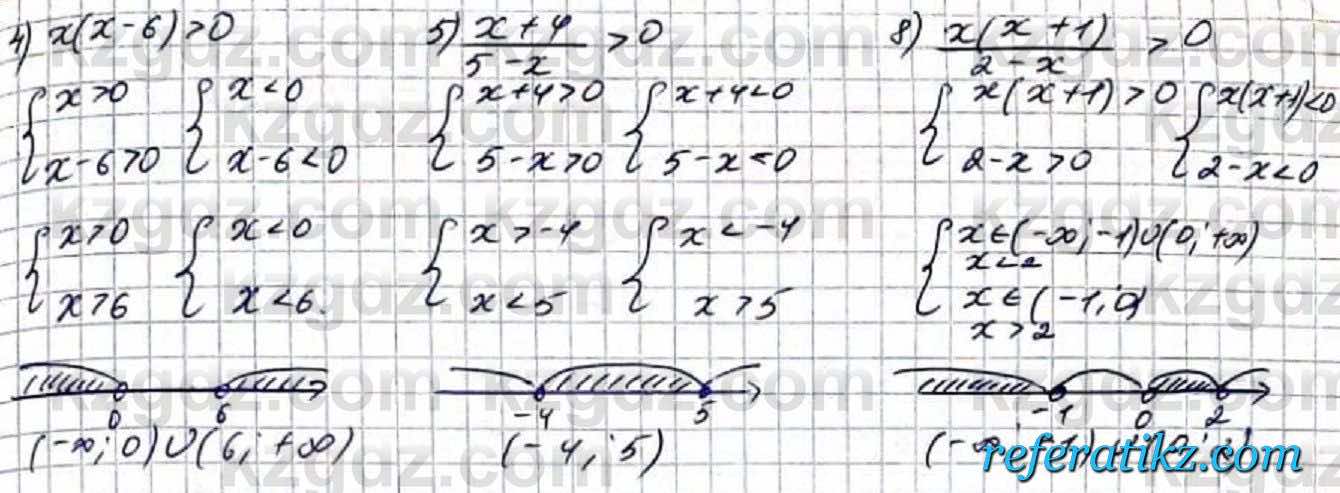 4) x(x-6)>0
{x>0
x-6>0
{x<0
x-6<0
{x>0
x>6
{x<0
x<6.
0 6
(-∞; 0)∪(6; +∞)
5) (x+4)/(5-x) >0
{x+4>0
5-x>0
{x+4<0
5-x<0
{x>-4
x<5
{x<-4
x>5
-4 5
(-4; 5)
8) x(x+1)/(2-x) >0
{x(x+1)>0
2-x>0
{x(x+1)<0
2-x<0
{x∈(-∞; -1)∪(0; +∞)
x<2
x∈(-1; 0)
x>2
-1 0 2
referatikz.com
kzgdz.com